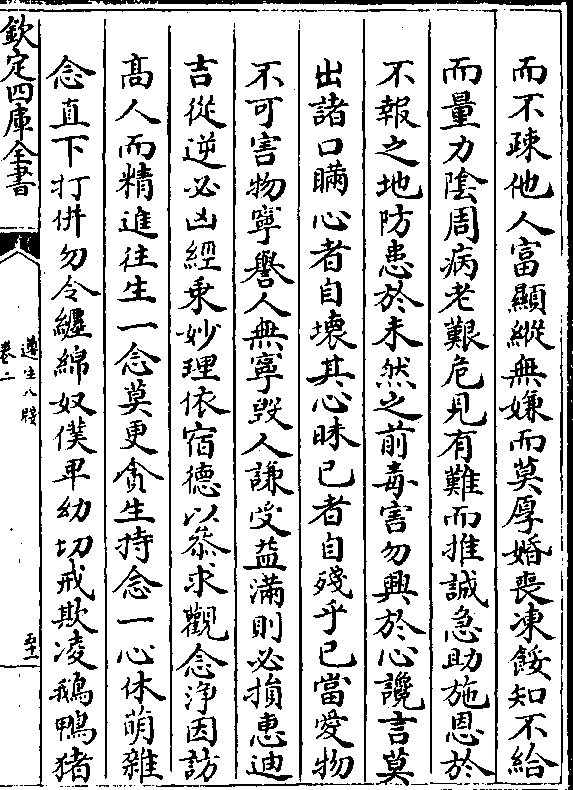 而不疎他人富顯縱無嫌而莫厚婚喪凍餒知不給
而量力陰周病老艱危見有難而推誠急助施恩於
不報之地防患於未然之前毒害勿興於心讒言莫
出諸口瞞心者自壞其心昧己者自殘乎己當愛物
不可害物寧譽人無寧毀人謙受益滿則必損惠迪
吉從逆必凶經秉妙理依宿德以叅求觀念浄因訪
髙人而精進往生一念莫更貪生持念一心休萌雜
念直下打併勿令纒綿奴僕卑幼切戒欺凌鵝鴨猪
欽定四庫全書
遵生八牋
卷二